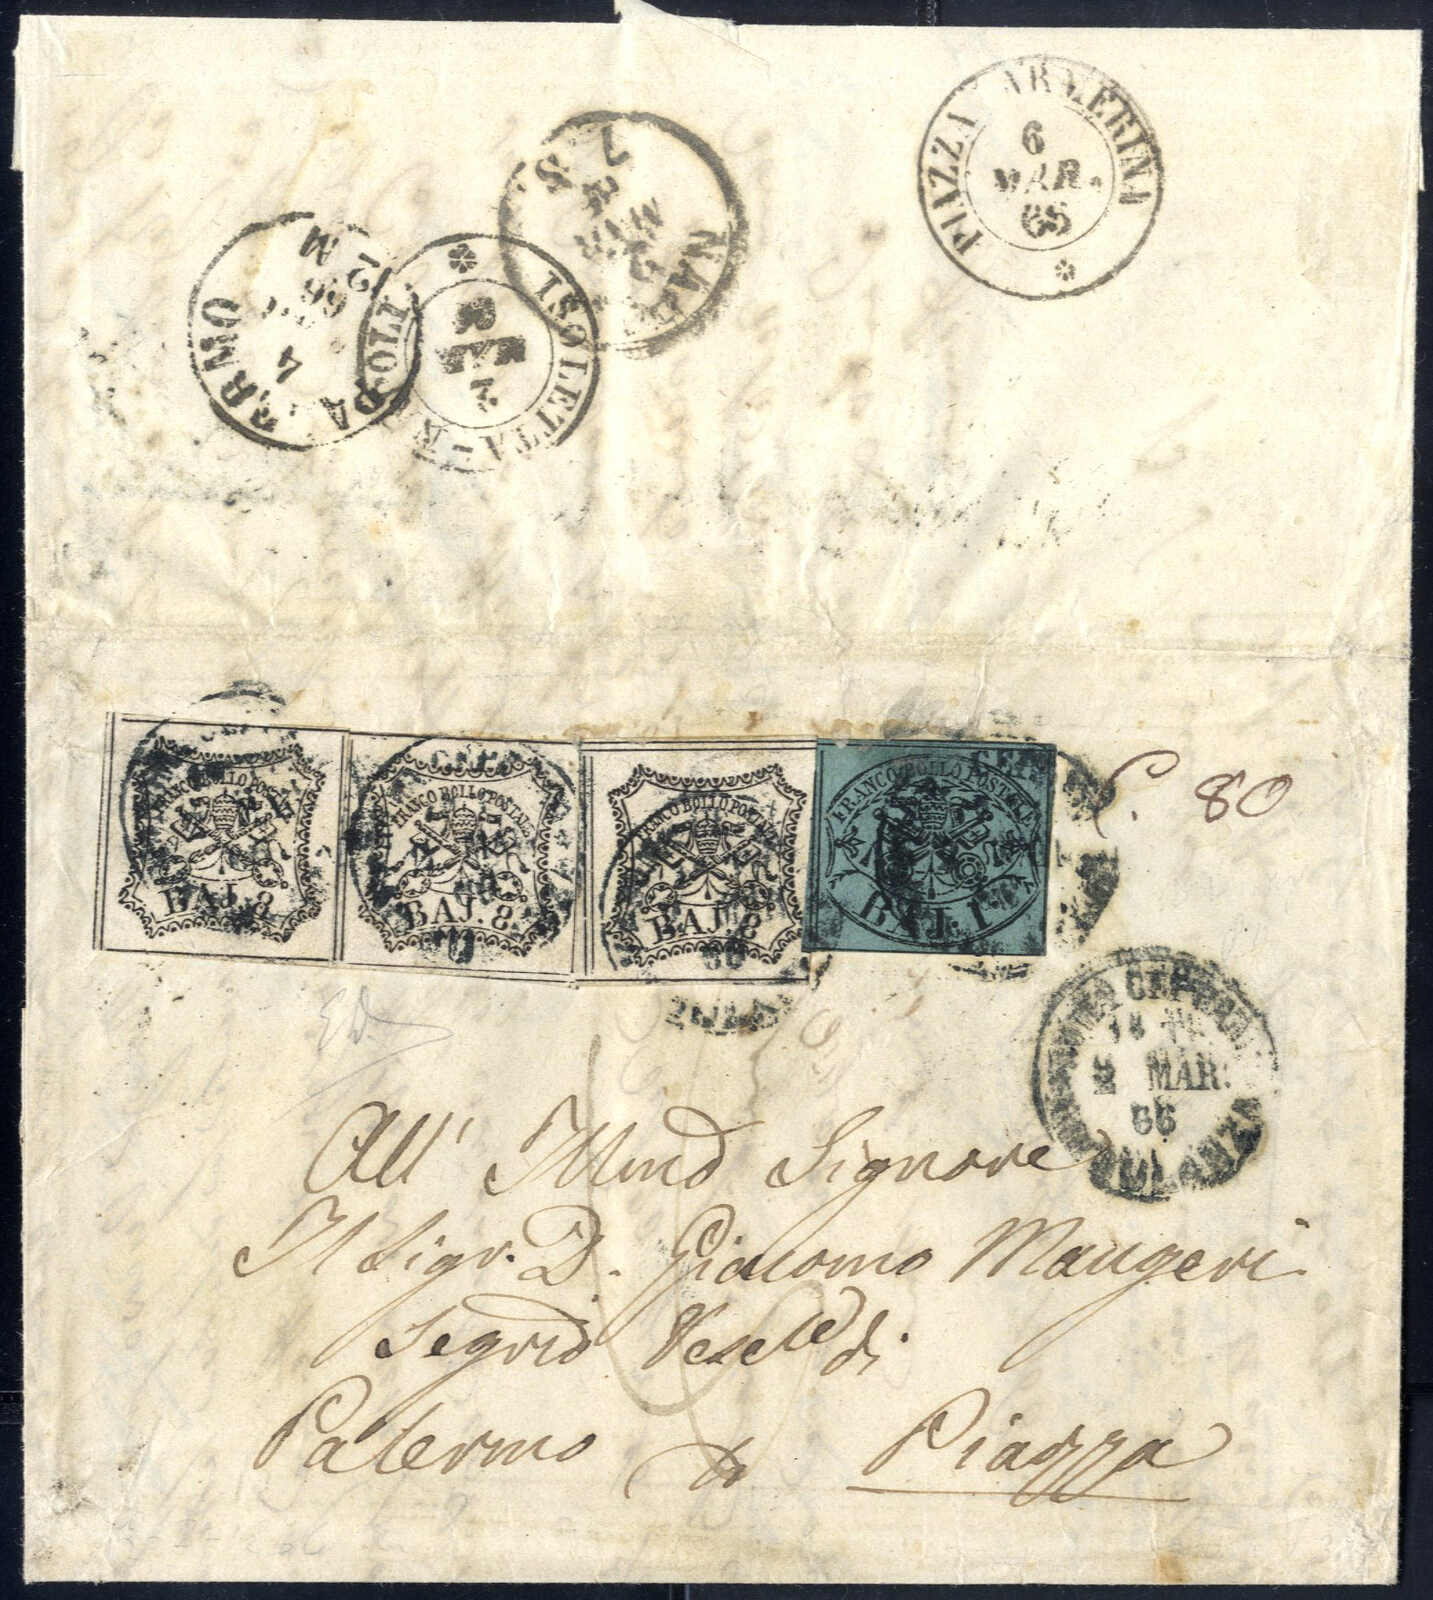 PIAZZA ARMERINA
6
MAR.
66
7 S
2
MAR
ISOLETTA-NAPOLI
2
MAR
PALERMO
4
66
12 M
FRANCO BOLLO POSTALE
BAJ. 8
FRANCO BOLLO POSTALE
BAJ. 8
FRANCO BOLLO POSTALE
BAJ. 8
FRANCO BOLLO POSTALE
BAJ. 1
C. 80
2 MAR.
66
All' Illmo Signore
Il Sigr. D. Giacomo Maugeri
di
Palermo Piazza